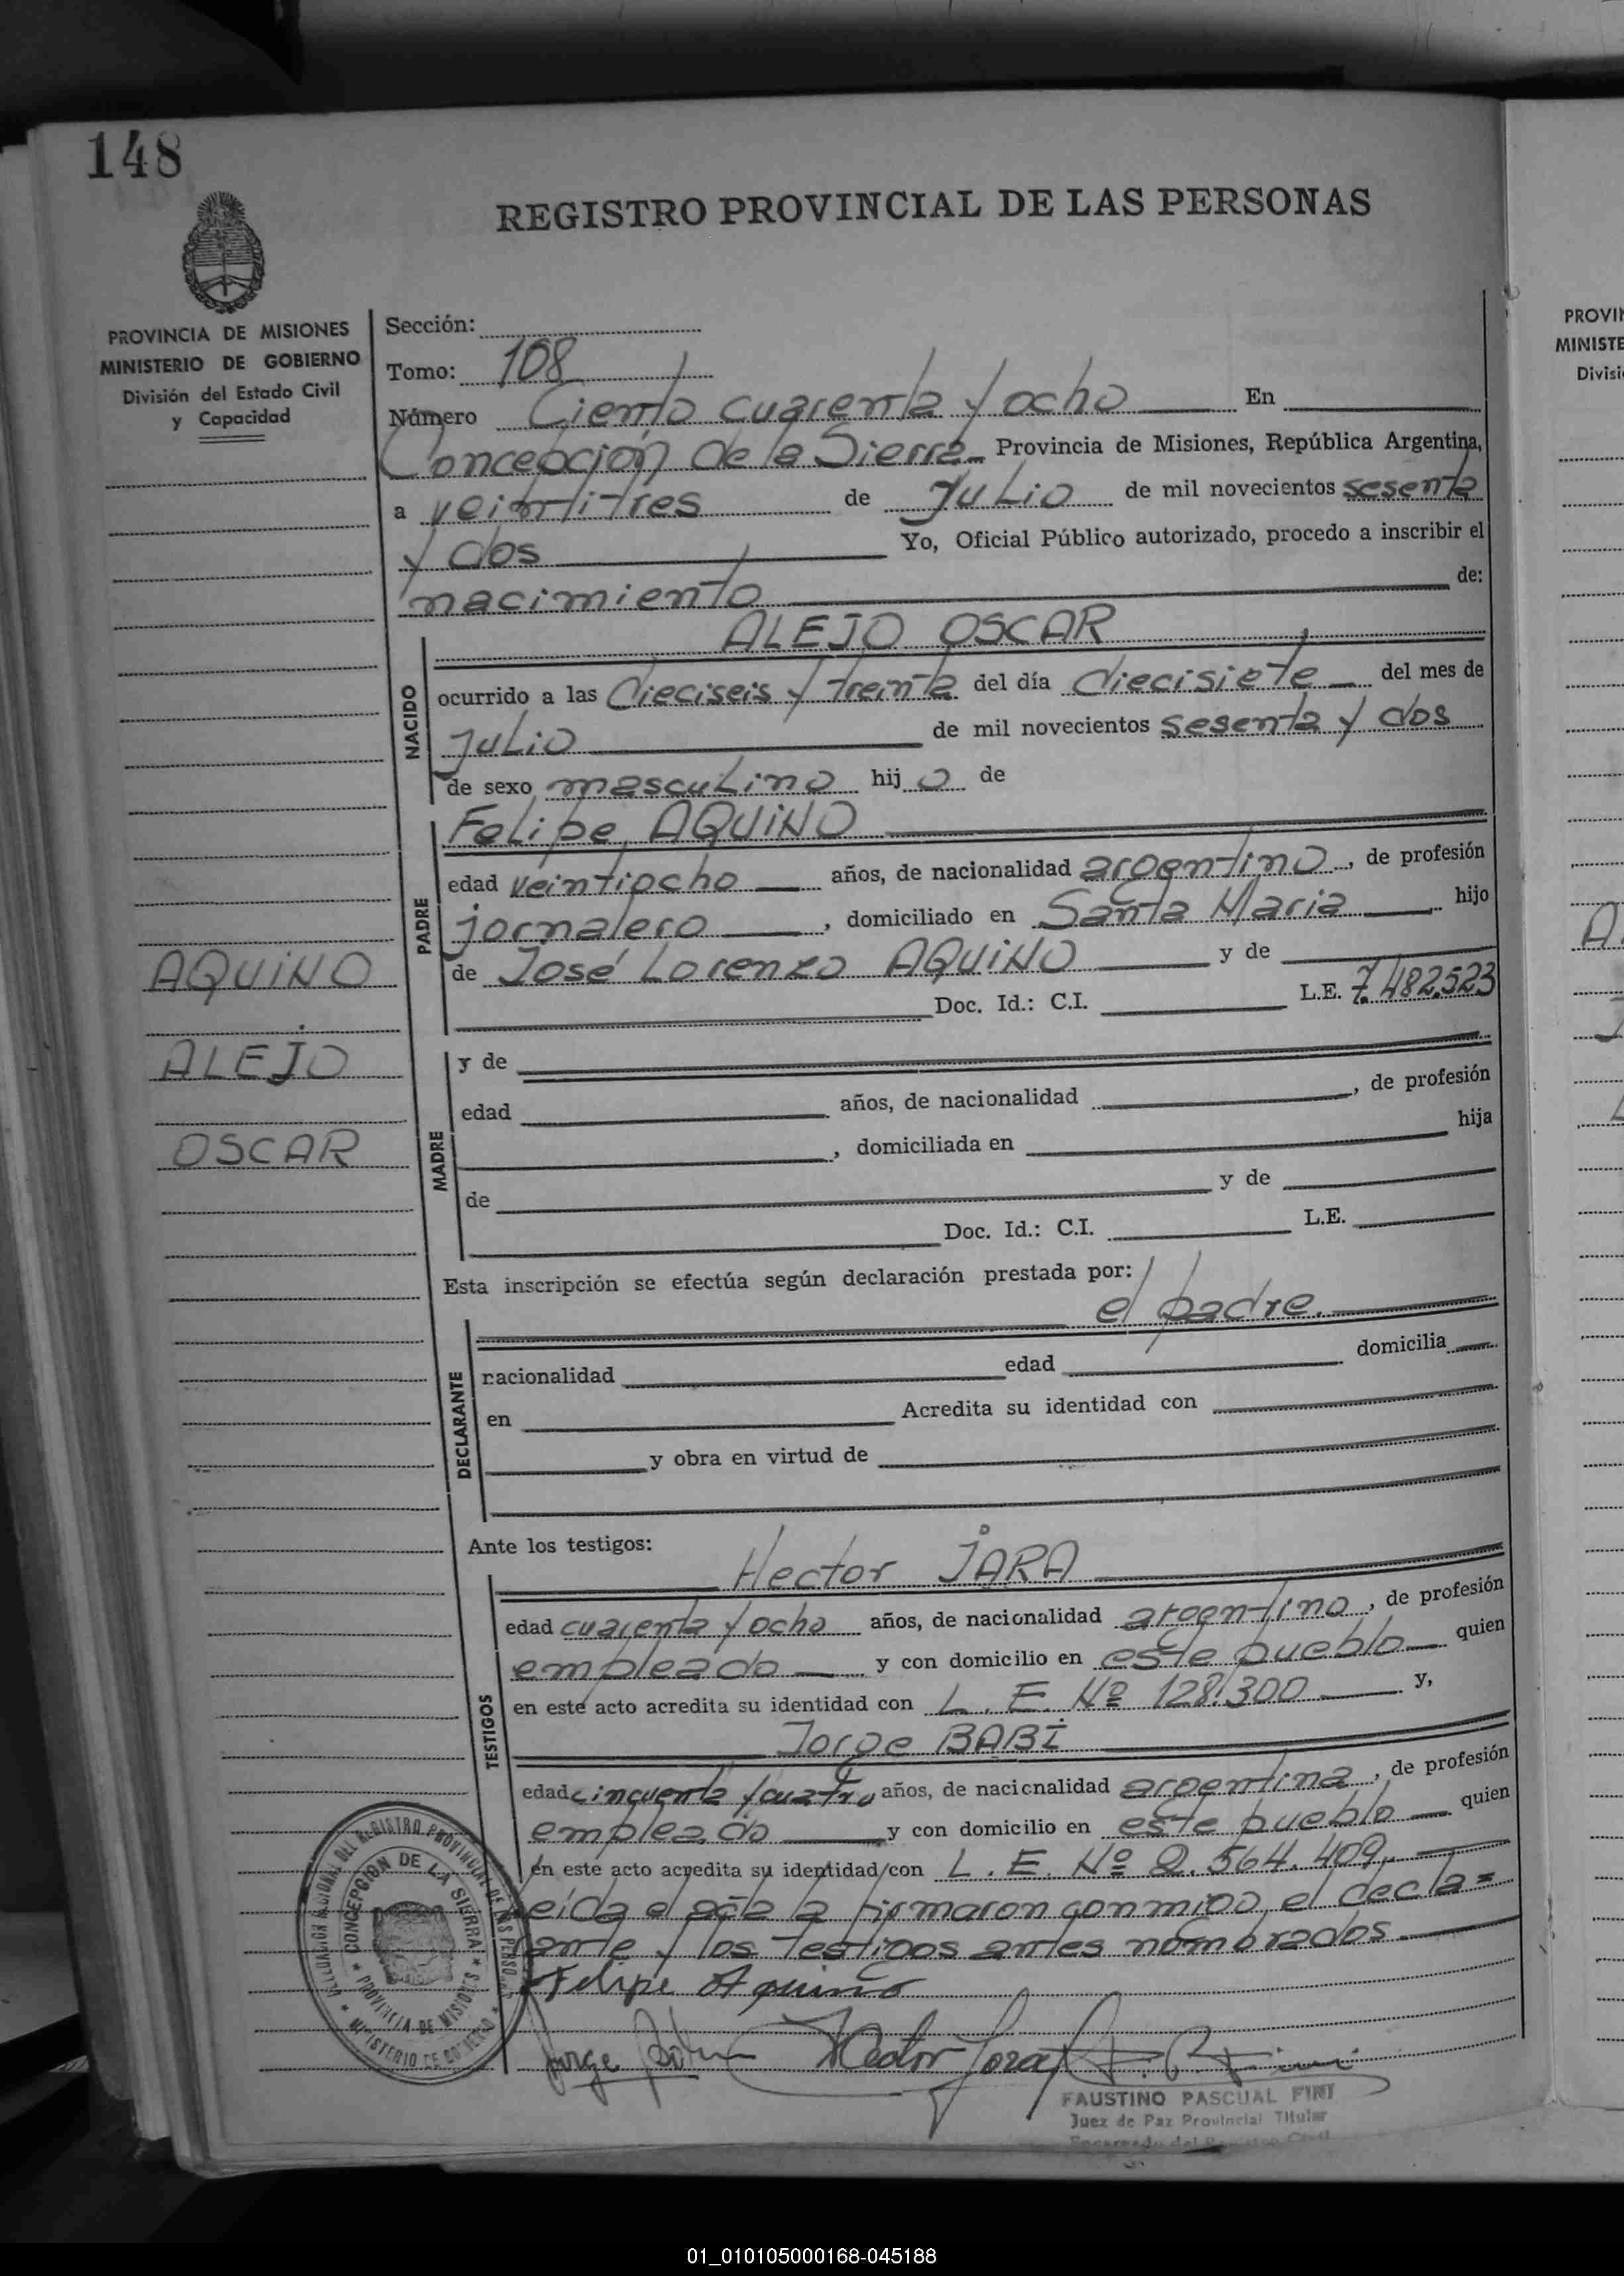 148
REGISTRO PROVINCIAL DE LAS PERSONAS
PROVINCIA DE MISIONES
MINISTERIO DE GOBIERNO
División del Estado Civil
y Capacidad
Sección:
Tomo: 108
Número Ciento cuarenta y ocho En
Concepción de la Sierra Provincia de Misiones, República Argentina,
a veintitres de Julio de mil novecientos sesenta
y dos Yo, Oficial Público autorizado, procedo a inscribir el
nacimiento de:
ALEJO OSCAR
NACIDO
ocurrido a las Dieciseis y treinta del día diecisiete del mes de
Julio de mil novecientos sesenta y dos
de sexo masculino hij o de
PADRE
Felipe AQUINO
edad veintiocho años, de nacionalidad argentino, de profesión
jornalero, domiciliado en Santa Maria hijo
de José Lorenzo AQUINO y de
Doc. Id.: C.I. L.E. 7.482.523
AQUINO
ALEJO
OSCAR
MADRE
y de
edad años, de nacionalidad , de profesión
, domiciliada en hija
de y de
Doc. Id.: C.I. L.E.
Esta inscripción se efectúa según declaración prestada por:
el padre.
DECLARANTE
nacionalidad edad domicilia
en Acredita su identidad con
y obra en virtud de
Ante los testigos:
TESTIGOS
Hector JARA
edad cuarenta y ocho años, de nacionalidad argentino, de profesión
empleado y con domicilio en este pueblo quien
en este acto acredita su identidad con L. E. Nº 128.300 y,
Jorge BABI
edad cincuenta y cuatro años, de nacionalidad argentina, de profesión
empleado y con domicilio en este pueblo quien
en este acto acredita su identidad con L. E. Nº 2.564.409.
Leída el acta la firmaron conmigo, el decla=
rante y los testigos antes nombrados.
Felipe Aquino
Jorge Hector Jara
CONCEPCION DE LA SIERRA
PROVINCIA DE MISIONES
MINISTERIO DE GOBIERNO
FAUSTINO PASCUAL FINI
Juez de Paz Provincial Titular
Encargado del Registro Civil
PROVI
MINISTE
Divisi
01_010105000168-045188